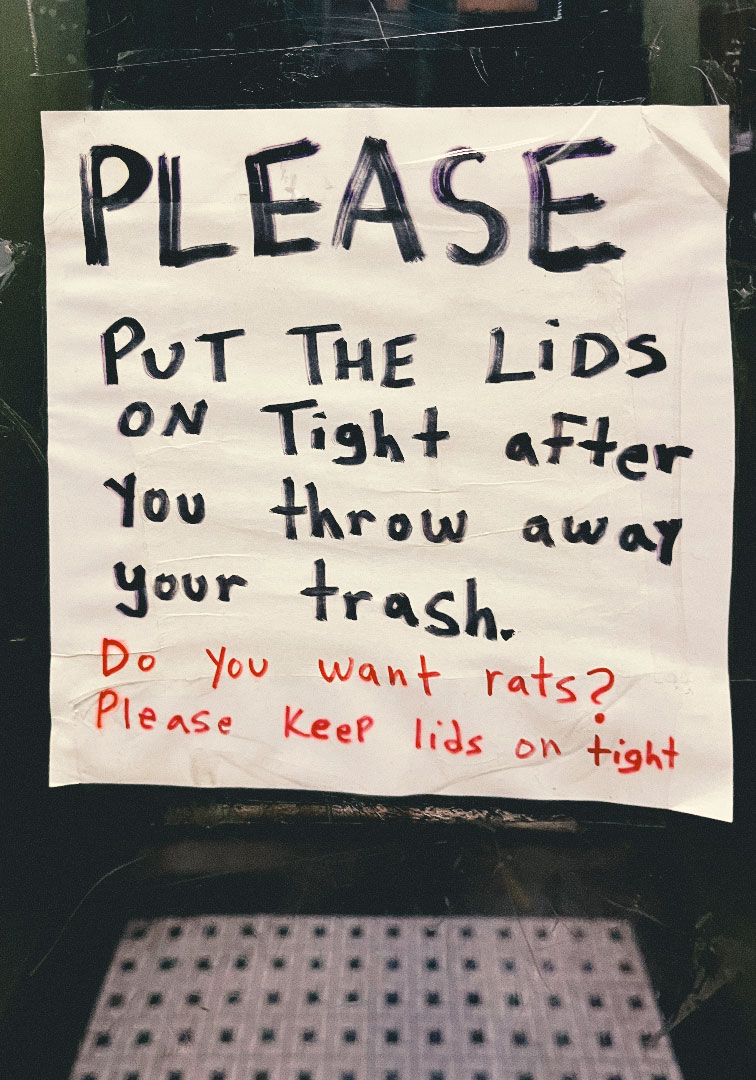 PLEASE
PUT THE LiDS
ON Tight after
You throw away
your trash.
Do You want rats?
Please KeeP lids on tight